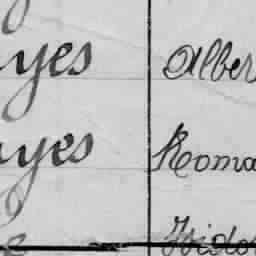 yes Alber
yes Roma
Isido